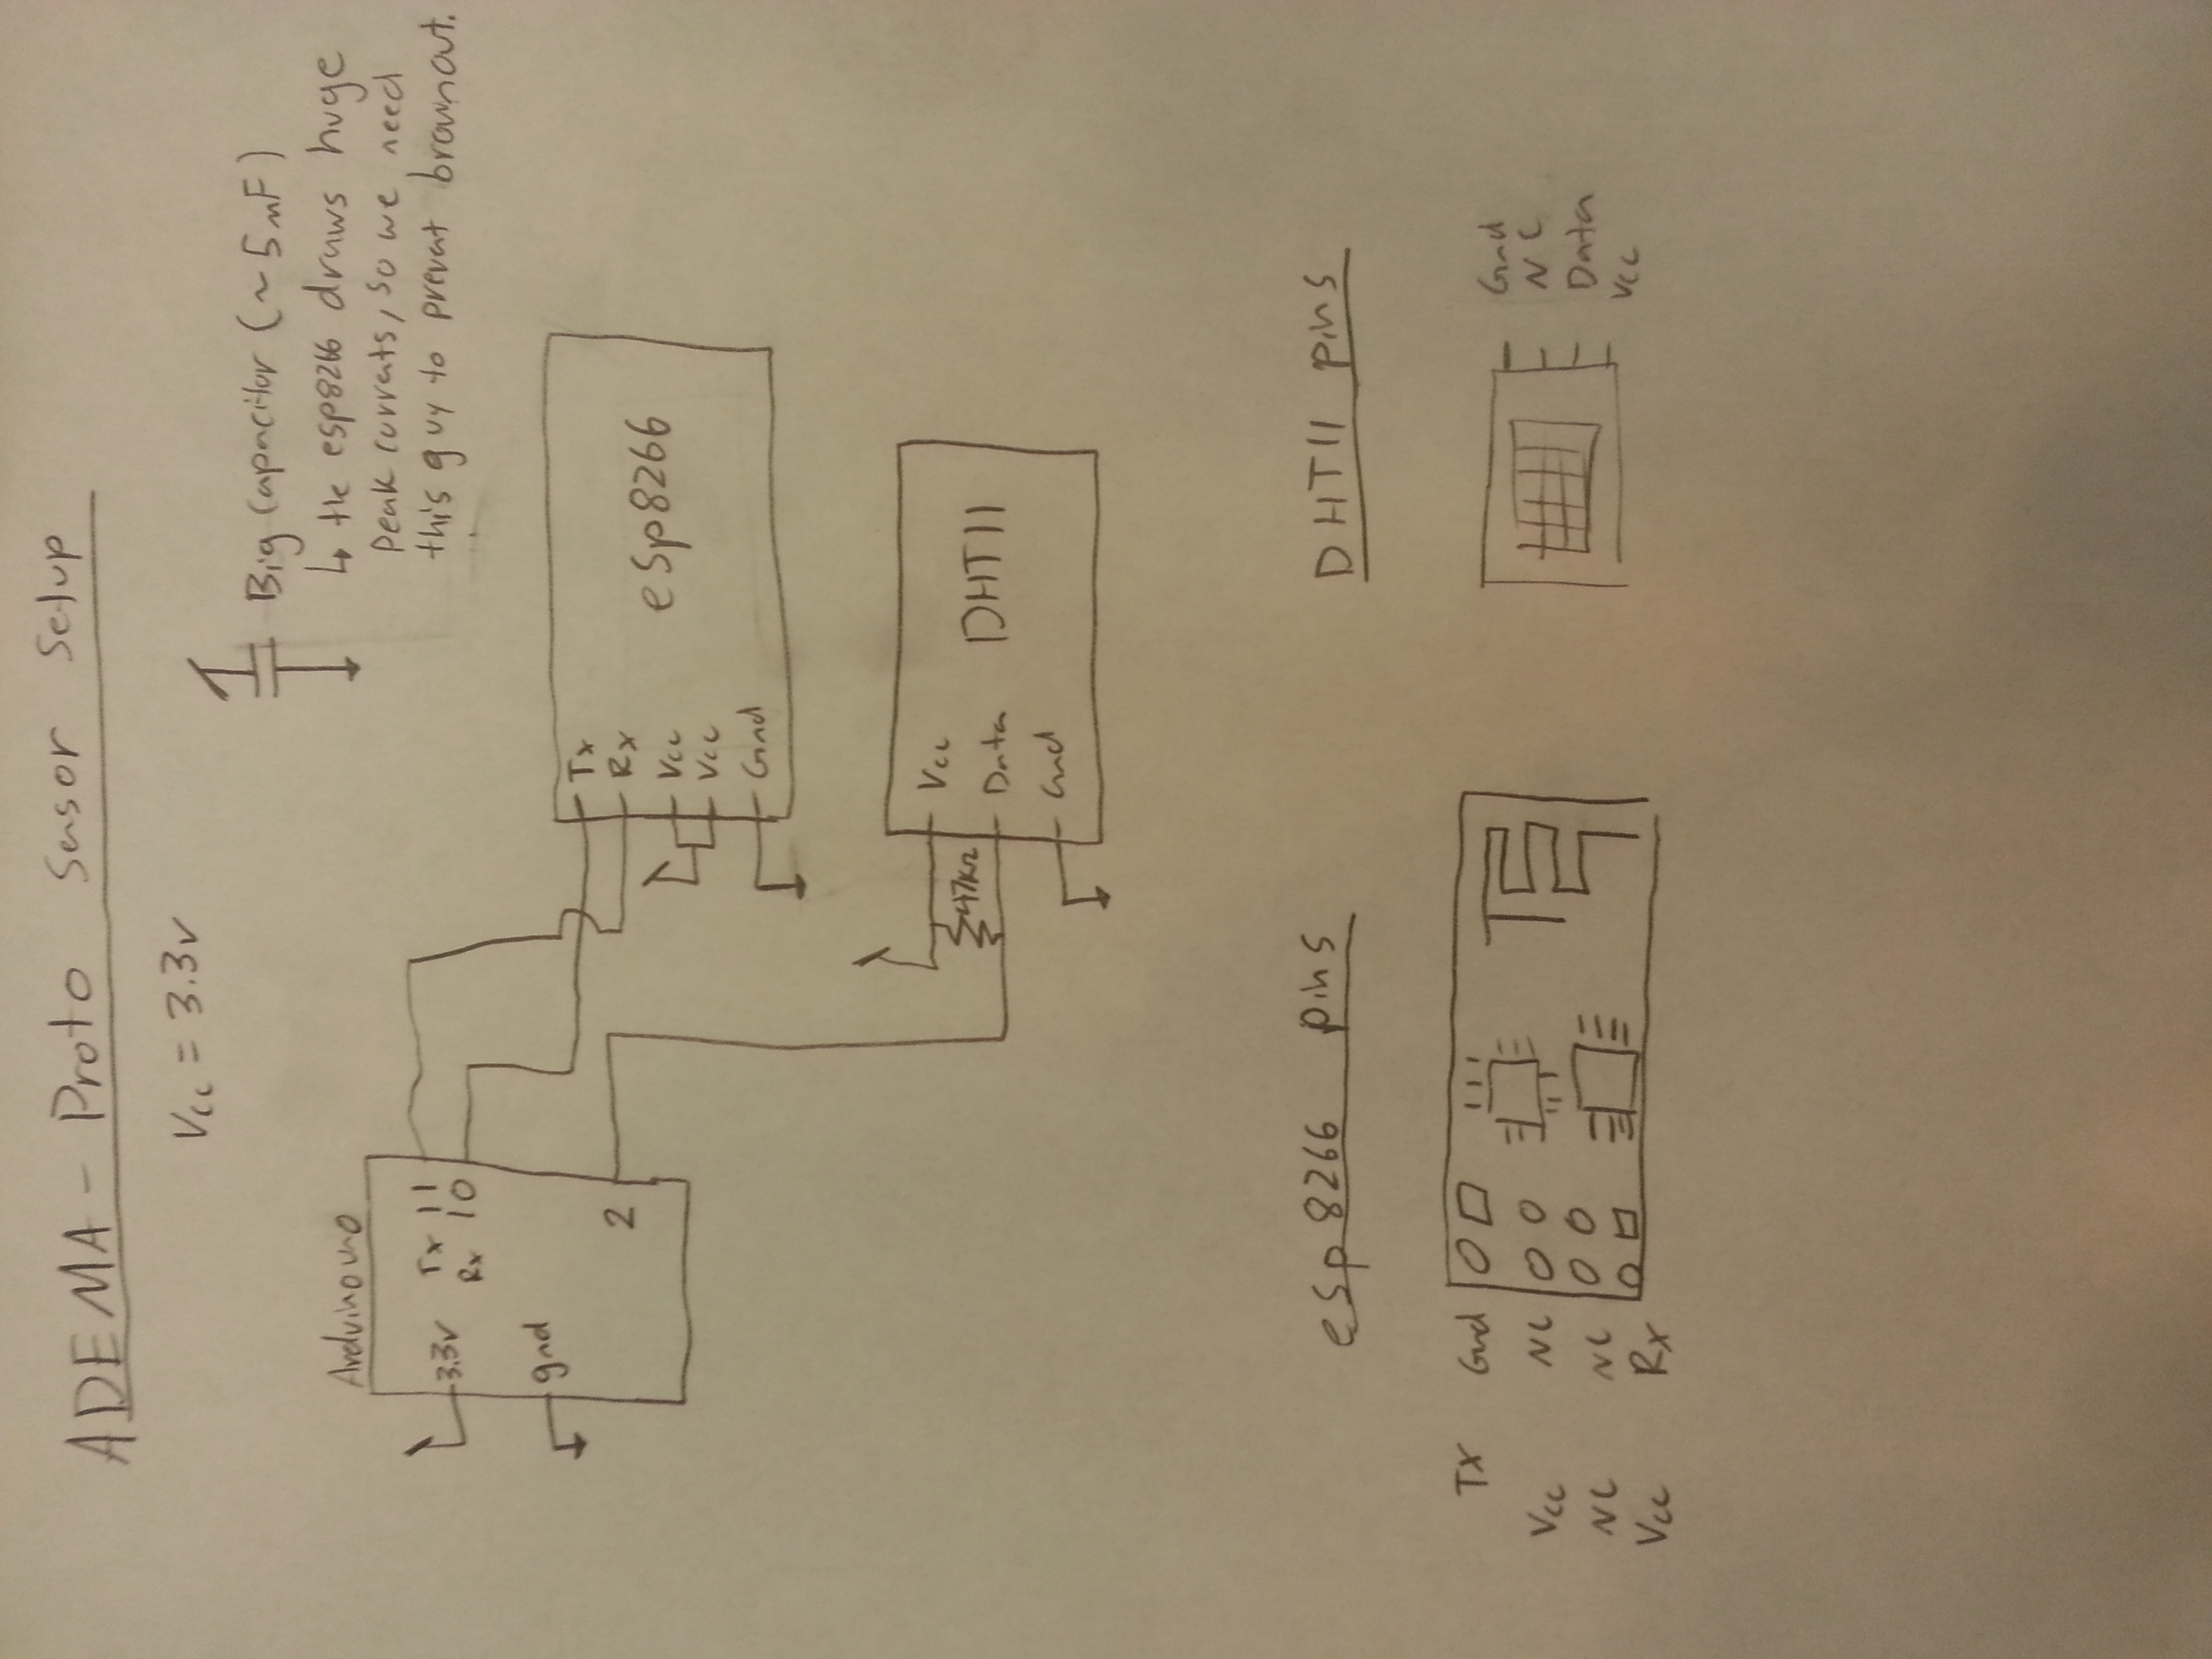 ADEMA - Proto Sensor Setup
Vcc = 3.3v
Big Capacitor (~5mF)
↳ the esp8266 draws huge
peak currents, so we need
this guy to prevent brownout.
Arduino uno
3.3v Tx 11
Rx 10
gnd
2
Tx
Rx
Vcc
Vcc
Gnd
esp8266
Vcc
Data
Gnd
DHT11
47kΩ
esp8266 pins
Tx Gnd
Vcc NC
NC NC
Vcc Rx
DHT11 pins
Gnd
NC
Data
Vcc